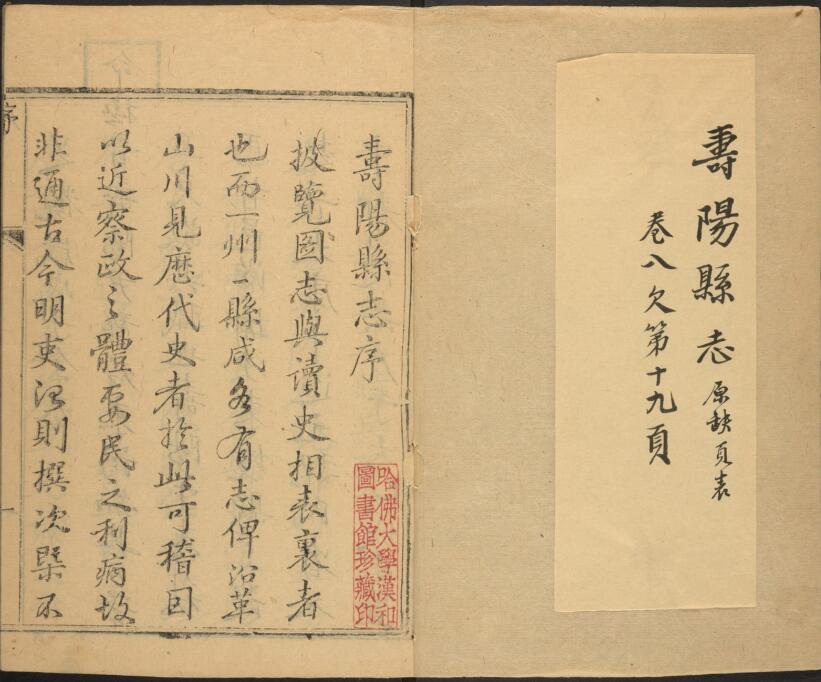 壽陽縣志 原缺頁表
卷八欠第十九頁
壽陽縣志序
披覽圖志與讀史相表裏者
也而一州一縣咸各有志俾沿革
山川見歷代史者於此可稽因
以近察政之體要民之利病故
非通古今明吏治則撰次槩不
哈佛大學漢和
圖書館珍藏印
序
一